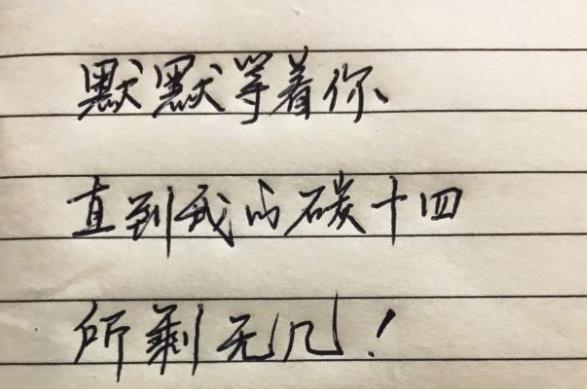 默默等着你
直到我的碳十四
所剩无几！